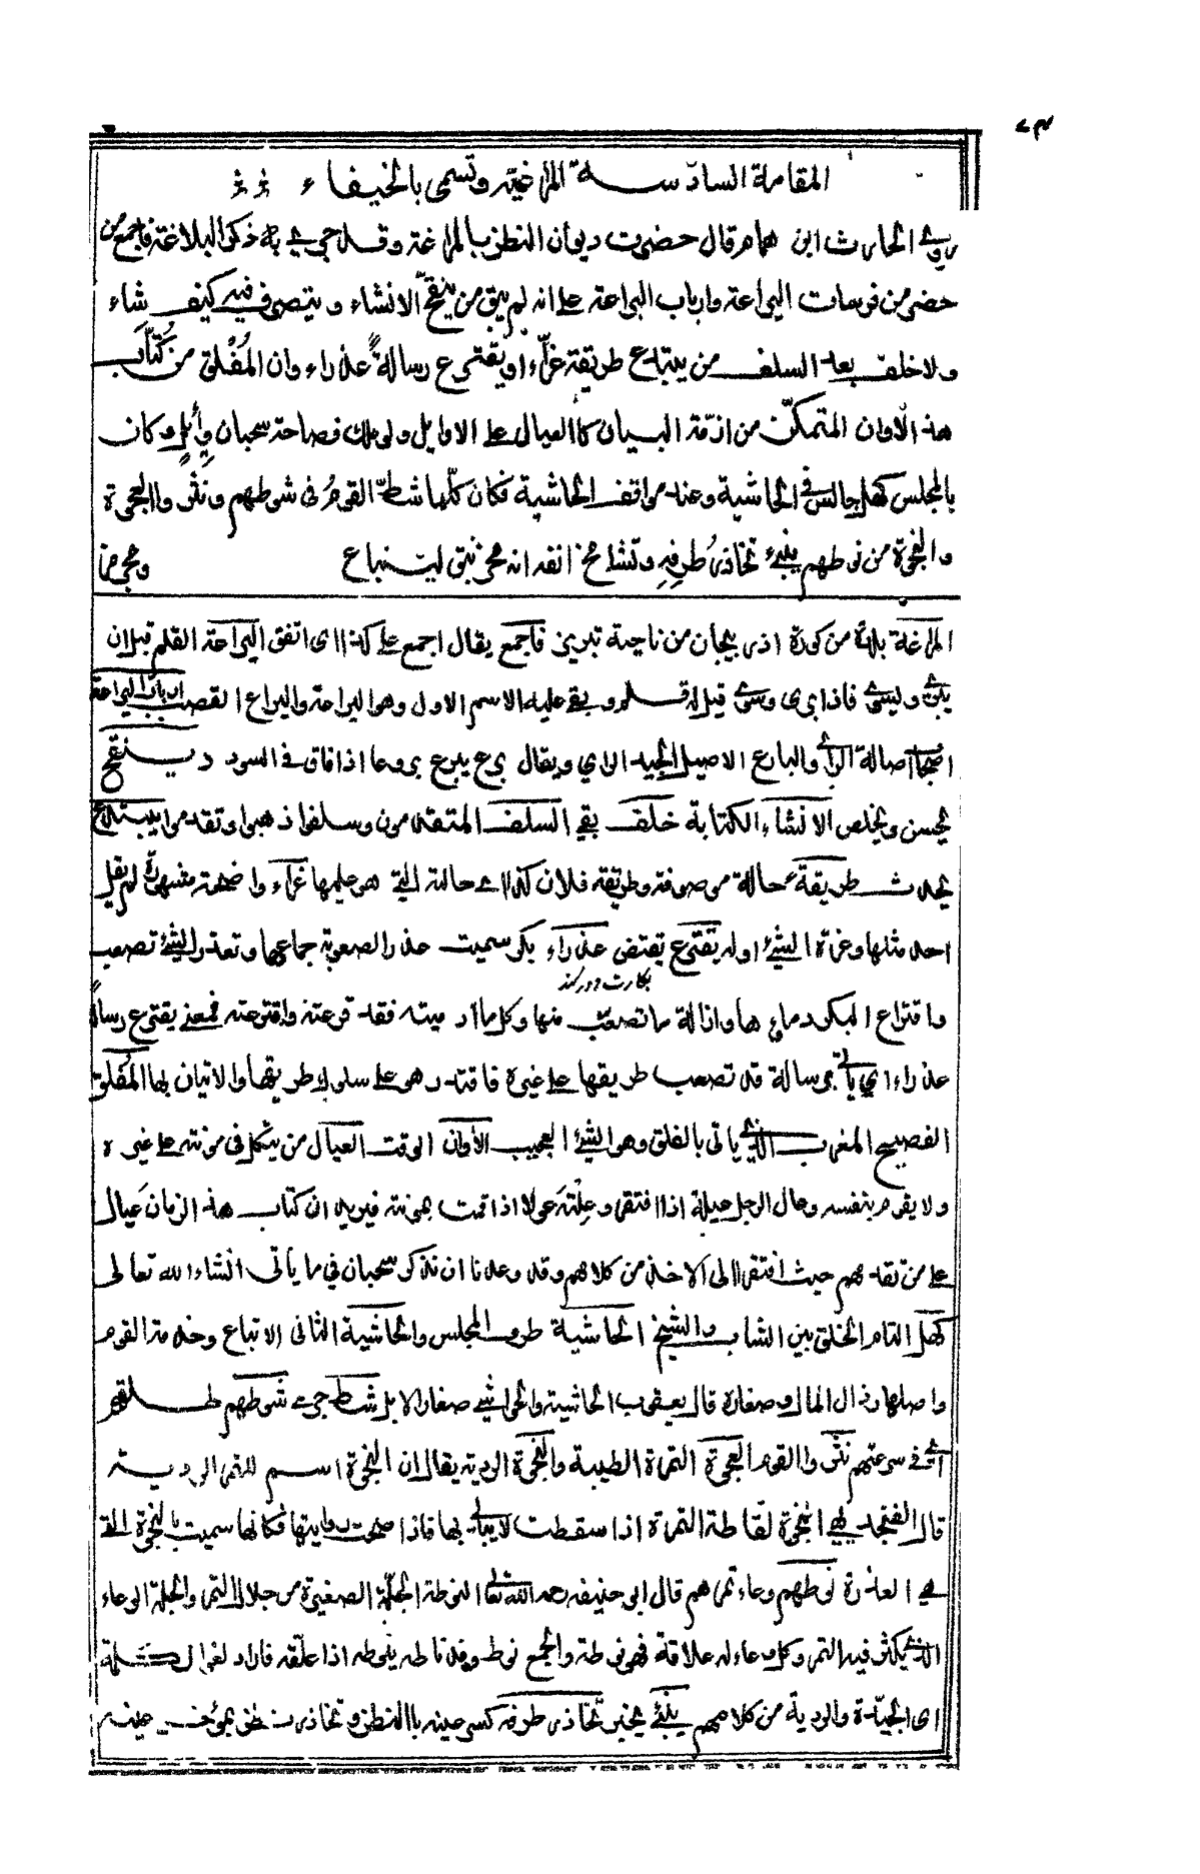 ٧٣
المقامة السادسة المراغية وتسمى بالخيفاء
روى الحارث ابن همام قال حضرت ديوان النظر بالمراغة وقد جرى به ذكر البلاغة فاجمع من
حضر من فرسان اليراعة وارباب البراعة على انه لم يبق من ينقّح الانشاء ويتصرف فيه كيف شاء
ولا خلف بعد السلف من يبتدع طريقة غرّاء او يفترع رسالةً عذراء وان المُفْلق من كُتّاب
هذا الأوان المتمكّن من ازمّة البيان كالعيال على الاوايل ولو ملك فصاحة سحبان وأيل وكان
بالمجلس كهل جالس في الحاشية وعند مواقف الحاشية فكان كلّما شطّ القومُ في شوطهم ونثروا العجوة
والنجوة من نوطهم ينبئ تخاذرُ طرفِهِ وتشامخ انفه انه مخرنبق لينباع
المراغة بلدة من كورة اذربيجان من ناحية تبريز فاجمع يقال اجمع على كذا اى اتفق اليراعة القلم قبل ان
يبرى وليسى فاذا برى وسوى قيل له قلم وبقى عليه الاسم الاول وهو اليراعة واليراع القصب ارباب البراعة
اصحاب اصالة الرأى والبارع الاصيل الجيد الراي ويقال برع يبرع بروعا اذا فاق في السودد ينقح
يحسن ويخلص الانشاء الكتابة خلف بقي السلف المتقدمون وسلفوا ذهبوا وتقدموا يبتدع
يحدث طريقة حالة موصوفة وطريقة فلان كذا اى حالته التي هو عليها غراء واضحة مشهورة لم يقل
احد مثلها وغرة الشئ اوله يفترع يفتض عذراء بكر سميت عذرا لصعوبة جماعها وتعذر الشئ تصعب
بكارت دور كند
وافتراع البكر دماءها وازالة ما تصعب منها وكل ما أدميته فقد فرعته وافترعته فمعنى يفترع رسالة
عذراء اي ياتى برسالة قد تصعب طريقها على غيره فاقتدر هو على سلوك طريقها والاتيان بها المُفلق
الفصيح المغرب الذى ياتى بالفلق وهو الشئ العجيب الأوان الوقت العيال من يتكل في مونته على غيره
ولا يقوم بنفسه وعال الرجل عيلة اذا افتقر وعِلْتُه عولا اذا قمت بمونته فيريد ان كتاب هذا الزمان عيال
على من تقدمهم حيث افتقروا الى الاخذ من كلامهم وقد وعدنا ان نذكر سحبان في ما يأتى انشاء الله تعالى
كهل التام الخلق بين الشاب والشيخ الحاشية طرف المجلس والحاشية الثانى الاتباع وخدمة القوم
واصلها رذال المال وصغاره قال يعقوب الحاشية والحواشى صغار الابل شط جرى شوطهم طلقهم
اى في سرعتهم نثروا القوم العجوة التمرة الطيبة والنجوة الردية يقال ان النجوة اسم للتمر الردية
قال الفنجديهى النجوة لقاطة التمرة اذا سقطت لا يبالى بها فاذا صحت روايتها فكانها سميت بالنجوة التى
هي العذرة نوطهم وعاء تمرهم قال ابى حنيفه رحمه الله تعا النوطة الجلّة الصغيرة من جلال التمر والجلة الوعاء
الذى يكنز فيه التمر وكل وعاء له علاقة فهو نوطة والجمع نوط وقد ناطه ينوطه اذا علّقه فاراد
اى الجيّدة والردية من كلامهم ينبئ يخبر تخاذر طرفه كسر عينه بالنظر وتخاذر نظر بمؤخر عينه